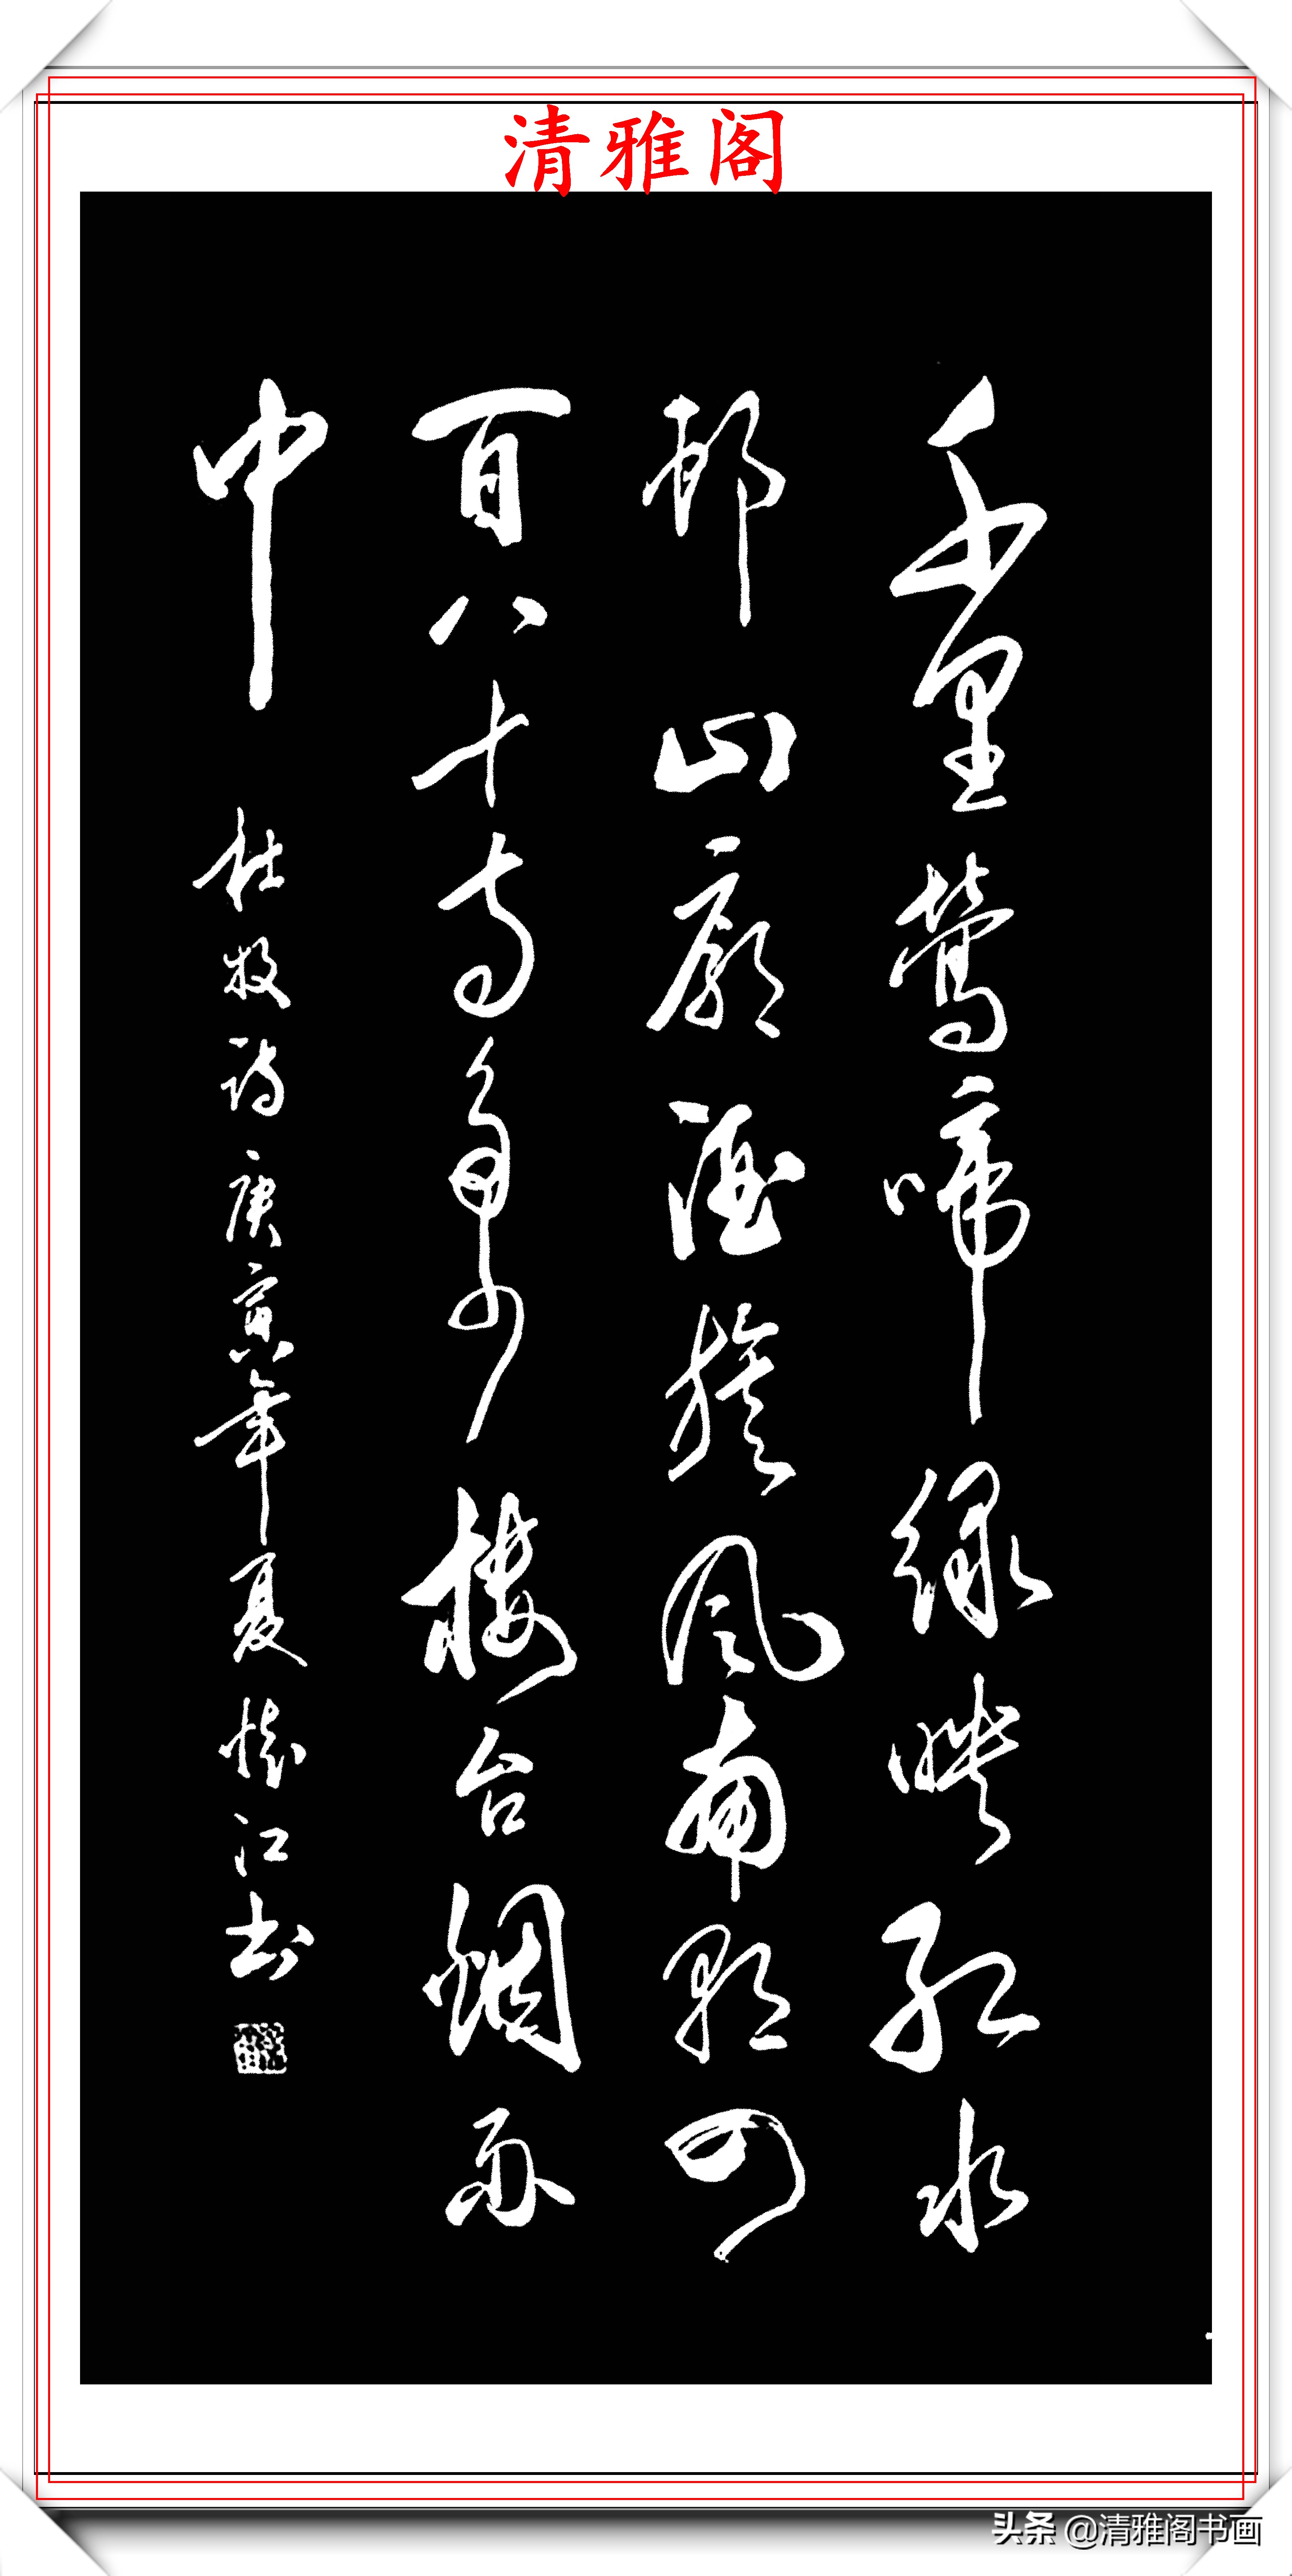 清雅阁
千里莺啼绿映红水
邨山廓酒旗风南朝四
百八十寺多少楼台烟雨
中
杜牧诗庚寅年夏怀江书
头条 @清雅阁书画